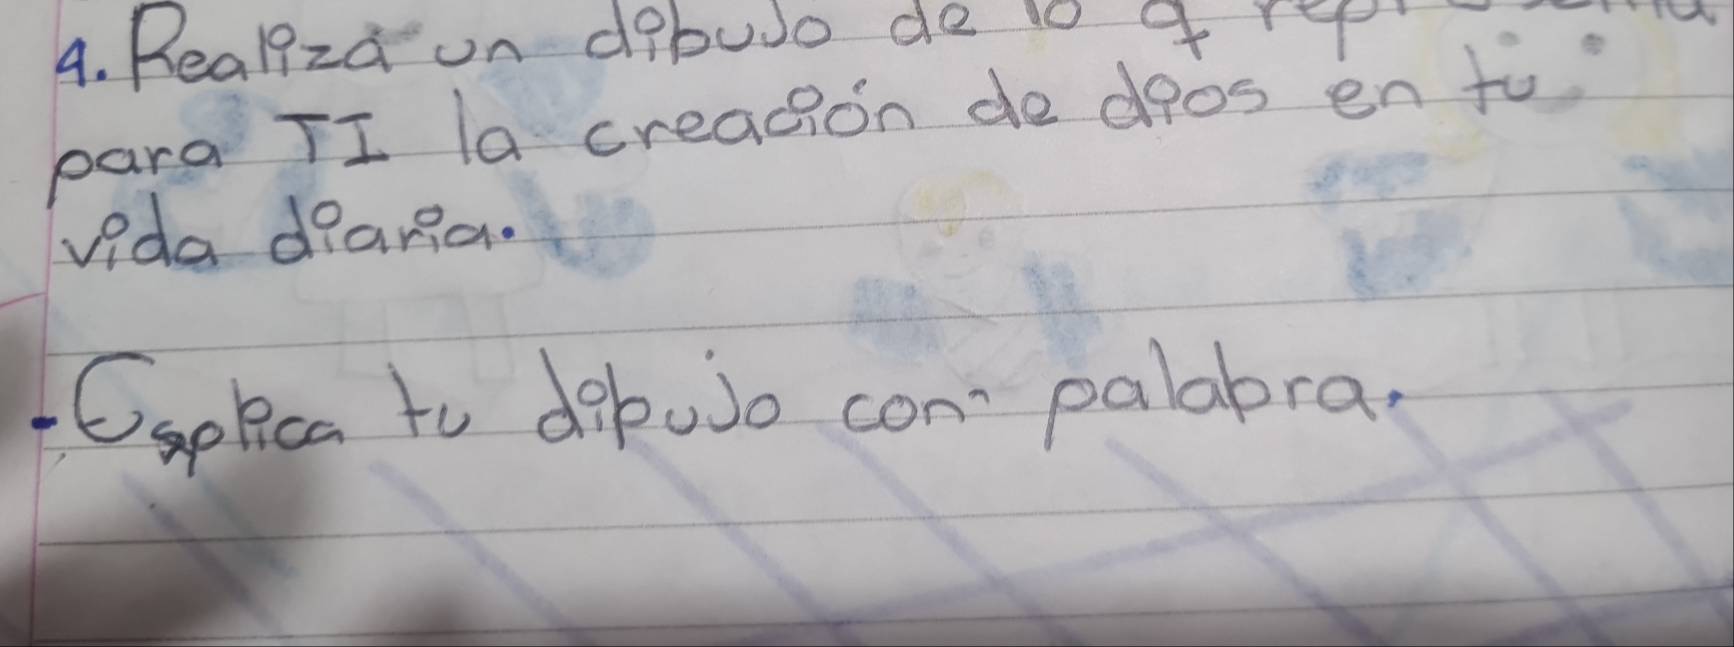 4. Realiza un dibujo de lo q representa
para TI la creación de dios en tu
vida diaria.
- Esplica tu dibujo con palabra.